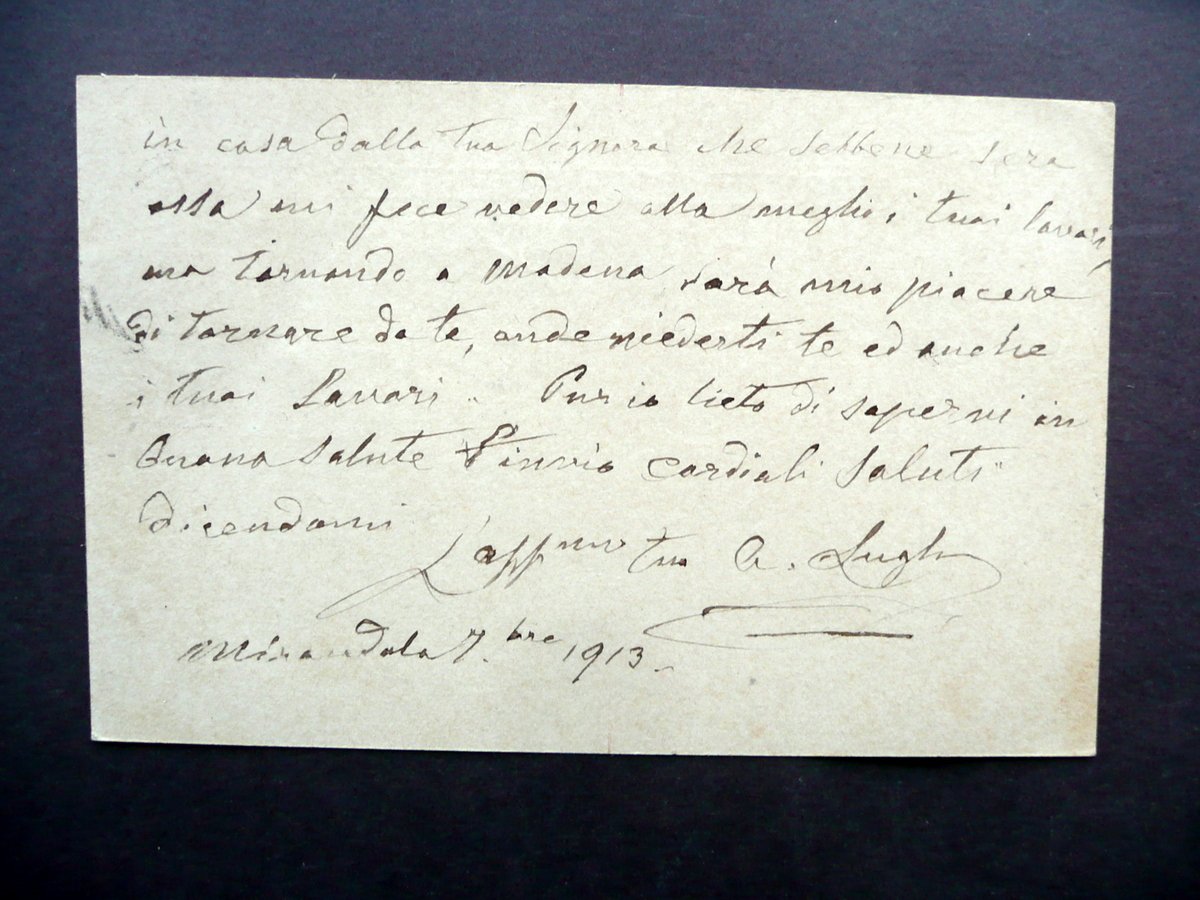 in casa dalla tua Signora che sebbene sera
essa mi fece vedere alla meglio i tuoi lavori,
ma tornando a Modena sarà mio piacere
di tornare da te, onde rivederti te ed anche
i tuoi Lavori. Pur io lieto di sapervi in
Buona Salute t'invio Cordiali Saluti
dicendomi
L'aff.mo tuo A. Lughi
Mirandola 7.bre 1913.